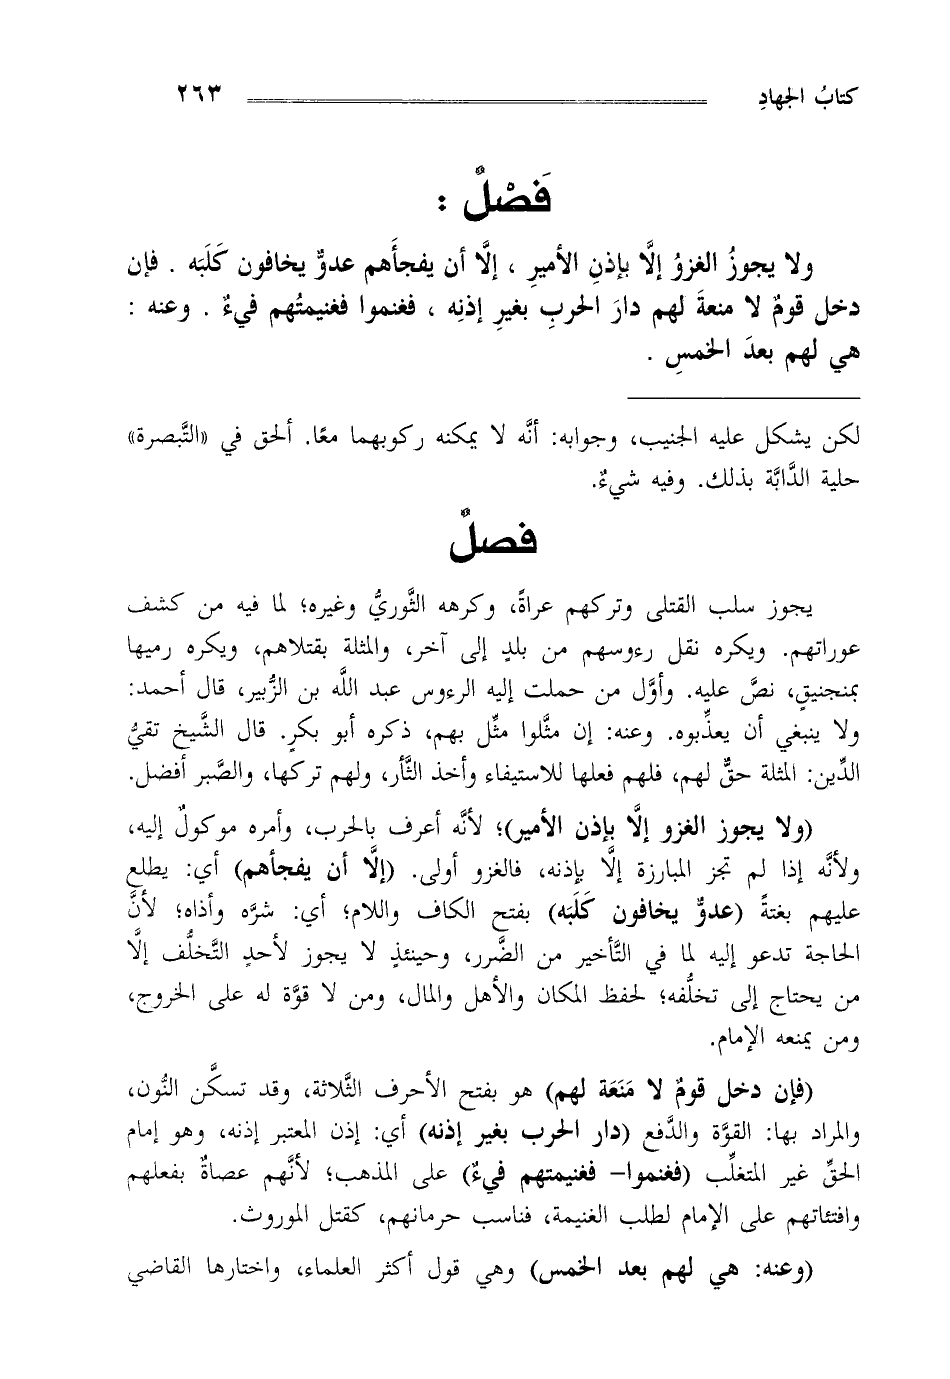 كتابُ الجهادِ ٢٦٣
فَصْلٌ :
ولا يجوزُ الغزوُ إلَّا بإذنِ الأميرِ ، إلَّا أن يفجأَهم عدوٌّ يخافون كَلَبَه . فإن
دخل قومٌ لا منعةَ لهم دارَ الحربِ بغيرِ إذنِه ، فغنموا فغنيمتُهم فيءٌ . وعنه :
هي لهم بعدَ الخمسِ .
لكن يشكل عليه الجنيب، وجوابه: أنَّه لا يمكنه ركوبهما معًا. ألحق في «التَّبصرة»
حلية الدَّابَّة بذلك. وفيه شيءٌ.
فصلٌ
يجوز سلب القتلى وتركهم عراةً، وكرهه الثَّوريُّ وغيره؛ لما فيه من كشف
عوراتهم. ويكره نقل رءوسهم من بلدٍ إلى آخر، والمثلة بقتلاهم، ويكره رميها
بمنجنيقٍ، نصَّ عليه. وأوَّل من حملت إليه الرءوس عبد اللَّه بن الزُّبير، قال أحمد:
ولا ينبغي أن يعذِّبوه. وعنه: إن مثَّلوا مثِّل بهم، ذكره أبو بكرٍ. قال الشَّيخ تقيُّ
الدِّين: المثلة حقٌّ لهم، فلهم فعلها للاستيفاء وأخذ الثَّأر، ولهم تركها، والصَّبر أفضل.
(ولا يجوز الغزو إلَّا بإذن الأمير)؛ لأنَّه أعرف بالحرب، وأمره موكولٌ إليه،
ولأنَّه إذا لم تجز المبارزة إلَّا بإذنه، فالغزو أولى. (إلَّا أن يفجأهم) أي: يطلع
عليهم بغتةً (عدوٌّ يخافون كَلَبَه) بفتح الكاف واللام؛ أي: شرَّه وأذاه؛ لأنَّ
الحاجة تدعو إليه لما في التَّأخير من الضَّرر، وحينئذٍ لا يجوز لأحدٍ التَّخلُّف إلَّا
من يحتاج إلى تخلُّفه؛ لحفظ المكان والأهل والمال، ومن لا قوَّة له على الخروج،
ومن يمنعه الإمام.
(فإن دخل قومٌ لا مَنَعَة لهم) هو بفتح الأحرف الثَّلاثة، وقد تسكَّن النُّون،
والمراد بها: القوَّة والدَّفع (دار الحرب بغير إذنه) أي: إذن المعتبر إذنه، وهو إمام
الحقِّ غير المتغلِّب (فغنموا- فغنيمتهم فيءٌ) على المذهب؛ لأنَّهم عصاةٌ بفعلهم
وافتئاتهم على الإمام لطلب الغنيمة، فناسب حرمانهم، كقتل الموروث.
(وعنه: هي لهم بعد الخمس) وهي قول أكثر العلماء، واختارها القاضي